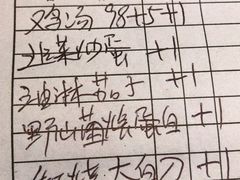 鸡汤 98+5+1
韭菜炒蛋 +1
油淋茄子 +1
野山菌烧蛋白 +1
红烧大白刁 +1